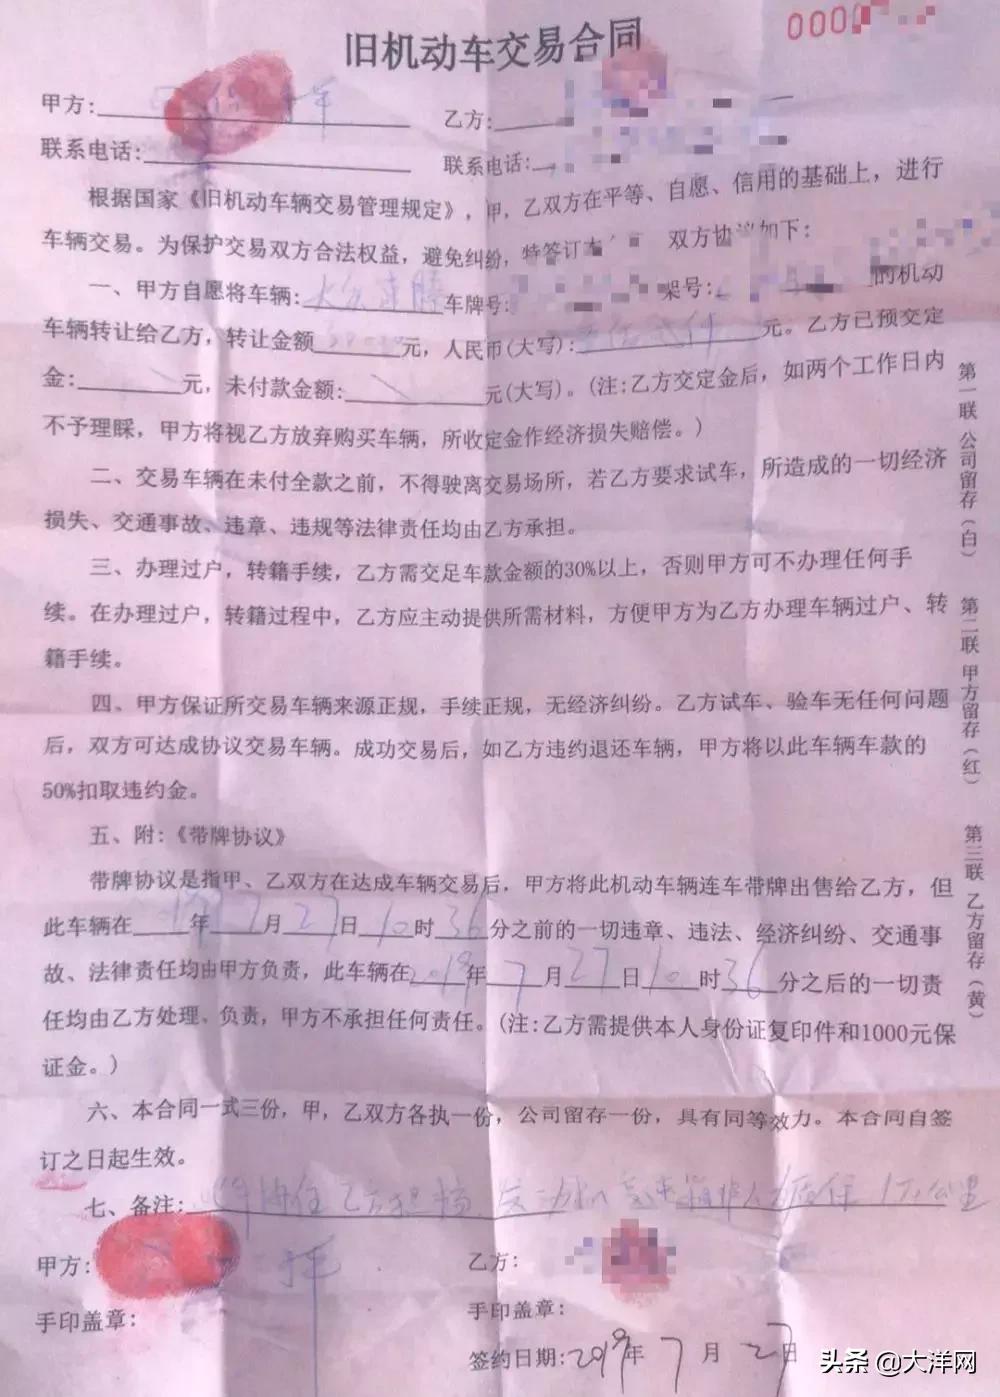 旧机动车交易合同
000
甲方: 乙方:
联系电话: 联系电话:
根据国家《旧机动车辆交易管理规定》，甲，乙双方在平等、自愿、信用的基础上，进行
车辆交易。为保护交易双方合法权益，避免纠纷，特签订本 双方协议如下：
一、甲方自愿将车辆:大众速腾车牌号: 架号: 的机动
车辆转让给乙方，转让金额 元，人民币(大写): 元。乙方已预交定
金: 元，未付款金额: 元(大写)。(注:乙方交定金后，如两个工作日内
不予理睬，甲方将视乙方放弃购买车辆，所收定金作经济损失赔偿。)
二、交易车辆在未付全款之前，不得驶离交易场所，若乙方要求试车，所造成的一切经济
损失、交通事故、违章、违规等法律责任均由乙方承担。
三、办理过户，转籍手续，乙方需交足车款金额的30%以上，否则甲方可不办理任何手
续。在办理过户，转籍过程中，乙方应主动提供所需材料，方便甲方为乙方办理车辆过户、转
籍手续。
四、甲方保证所交易车辆来源正规，手续正规，无经济纠纷。乙方试车、验车无任何问题
后，双方可达成协议交易车辆。成功交易后，如乙方违约退还车辆，甲方将以此车辆车款的
50%扣取违约金。
五、附:《带牌协议》
带牌协议是指甲、乙双方在达成车辆交易后，甲方将此机动车辆连车带牌出售给乙方，但
此车辆在 年7月27日10时36分之前的一切违章、违法、经济纠纷、交通事
故、法律责任均由甲方负责，此车辆在2019年7月27日10时36分之后的一切责
任均由乙方处理、负责，甲方不承担任何责任。(注:乙方需提供本人身份证复印件和1000元保
证金。)
六、本合同一式三份，甲，乙双方各执一份，公司留存一份，具有同等效力。本合同自签
订之日起生效。
七、备注: 乙方 发动机 质保1万公里
甲方: 乙方:
手印盖章: 手印盖章:
签约日期:2019年7月27日
第一联 公司留存(白)
第二联 甲方留存(红)
第三联 乙方留存(黄)
头条 @大洋网